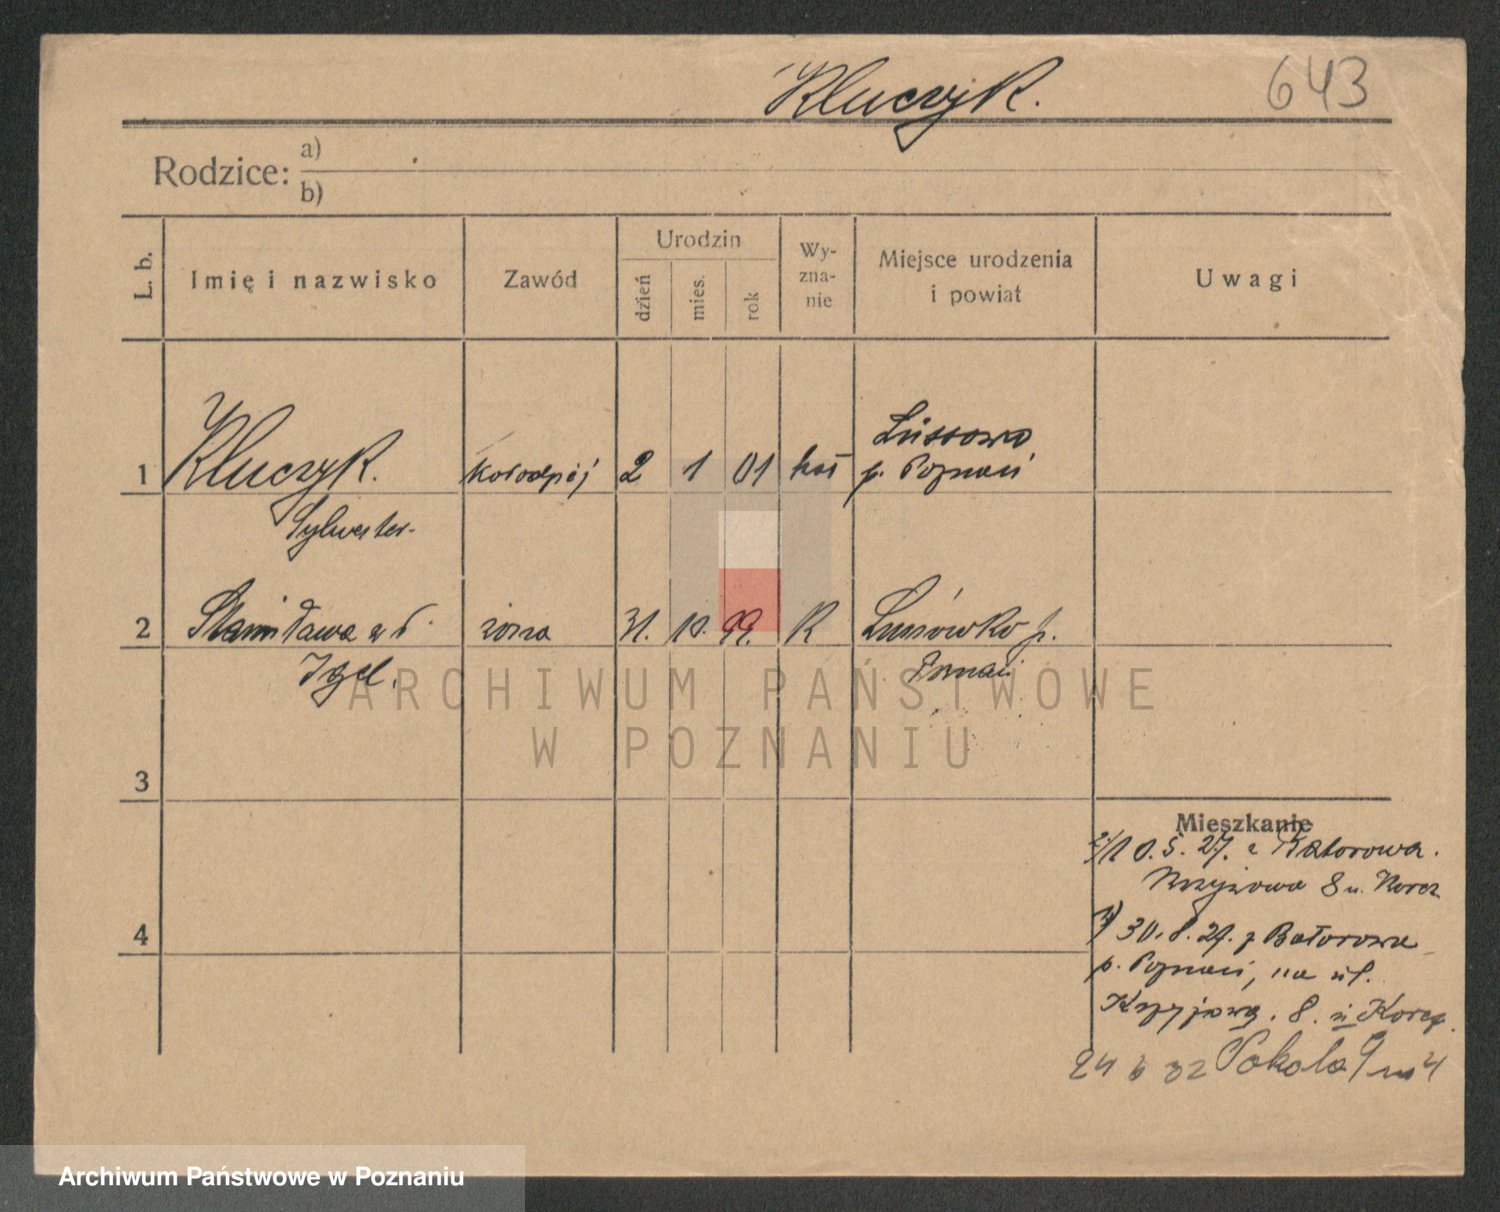 Kluczyk.
643
Rodzice: a)
b)
L. b.
Imię i nazwisko
Zawód
Urodzin
dzień
mies.
rok
Wy-
zna-
nie
Miejsce urodzenia
i powiat
Uwagi
1
Kluczyk.
Sylwester
2 1 01
kat
Lussowo
p. Poznań
2
Stanisława
żona
31. 10. 99.
R
Lusówko p.
Poznań
3
4
Mieszkanie
10.5.27. z Batorowa.
Krzyżowa 8 u.
30.8.27. z Batorowa
p. Poznań, na ul.
Krzyżową. 8.
24 6 32 Sokoła 9 m 4
ARCHIWUM PAŃSTWOWE
W POZNANIU
Archiwum Państwowe w Poznaniu